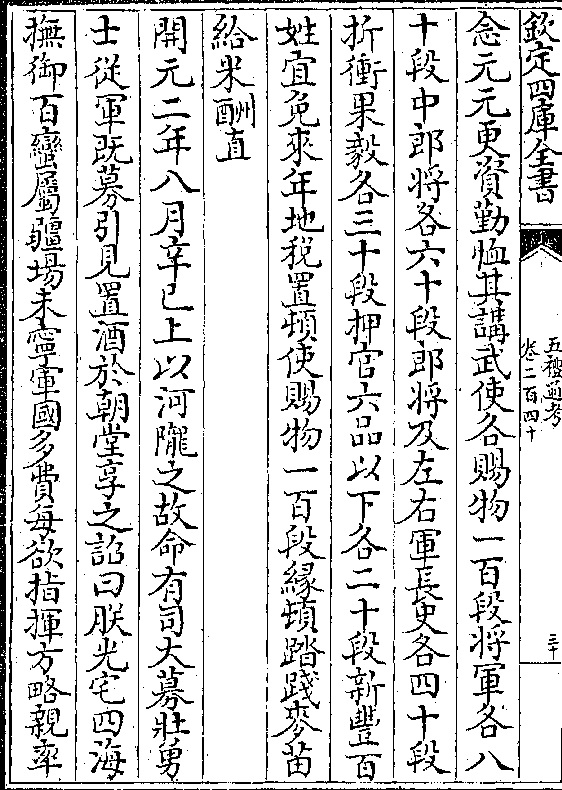 欽定四庫全書
五禮通考
卷二百四十
三十
念元元更資勤恤其講武使各賜物一百段將軍各八
十段中郎將各六十段郎將及左右軍長史各四十段
折衝果毅各三十段押官六品以下各二十段新豐百
姓宜免來年地稅置頓使賜物一百段緣頓踏踐麥苗
給米酬直
開元二年八月辛巳上以河隴之故命有司大募壯勇
士從軍既募引見置酒於朝堂享之詔曰朕光宅四海
撫御百蠻屬疆場未寧軍國多費每欲指揮方略親率